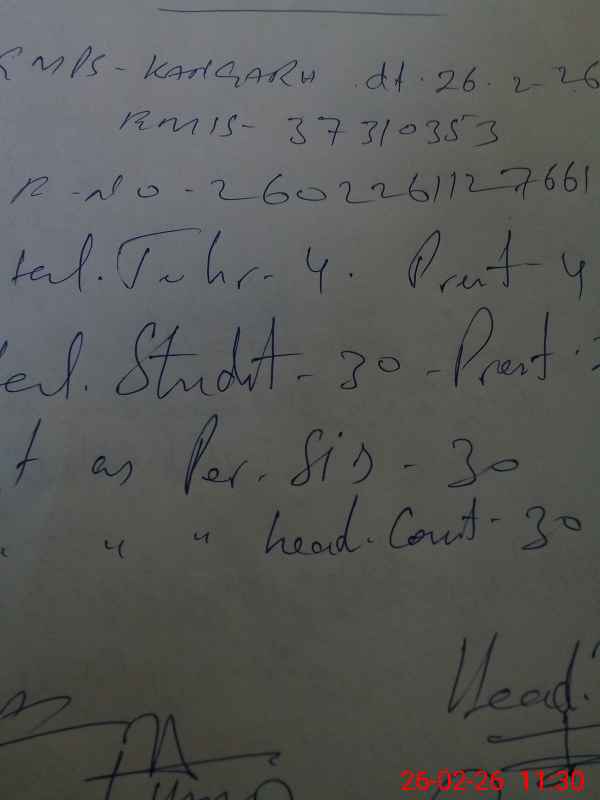 GMPS - KANGARH dt. 26.2.26
EMIS - 37310353
R-NO - 2602261127661
tal. Tehr - 4. Prent - 4
tal. Studnt - 30 - Prent :
t as Per. SiD - 30
" " " head. Count - 30
Head.
26-02-26 11:30